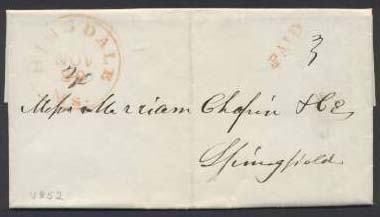 HINSDALE
NOV
29
Ms.
PAID
3
Messrs Merriam Chapin & Co
Springfield
1852